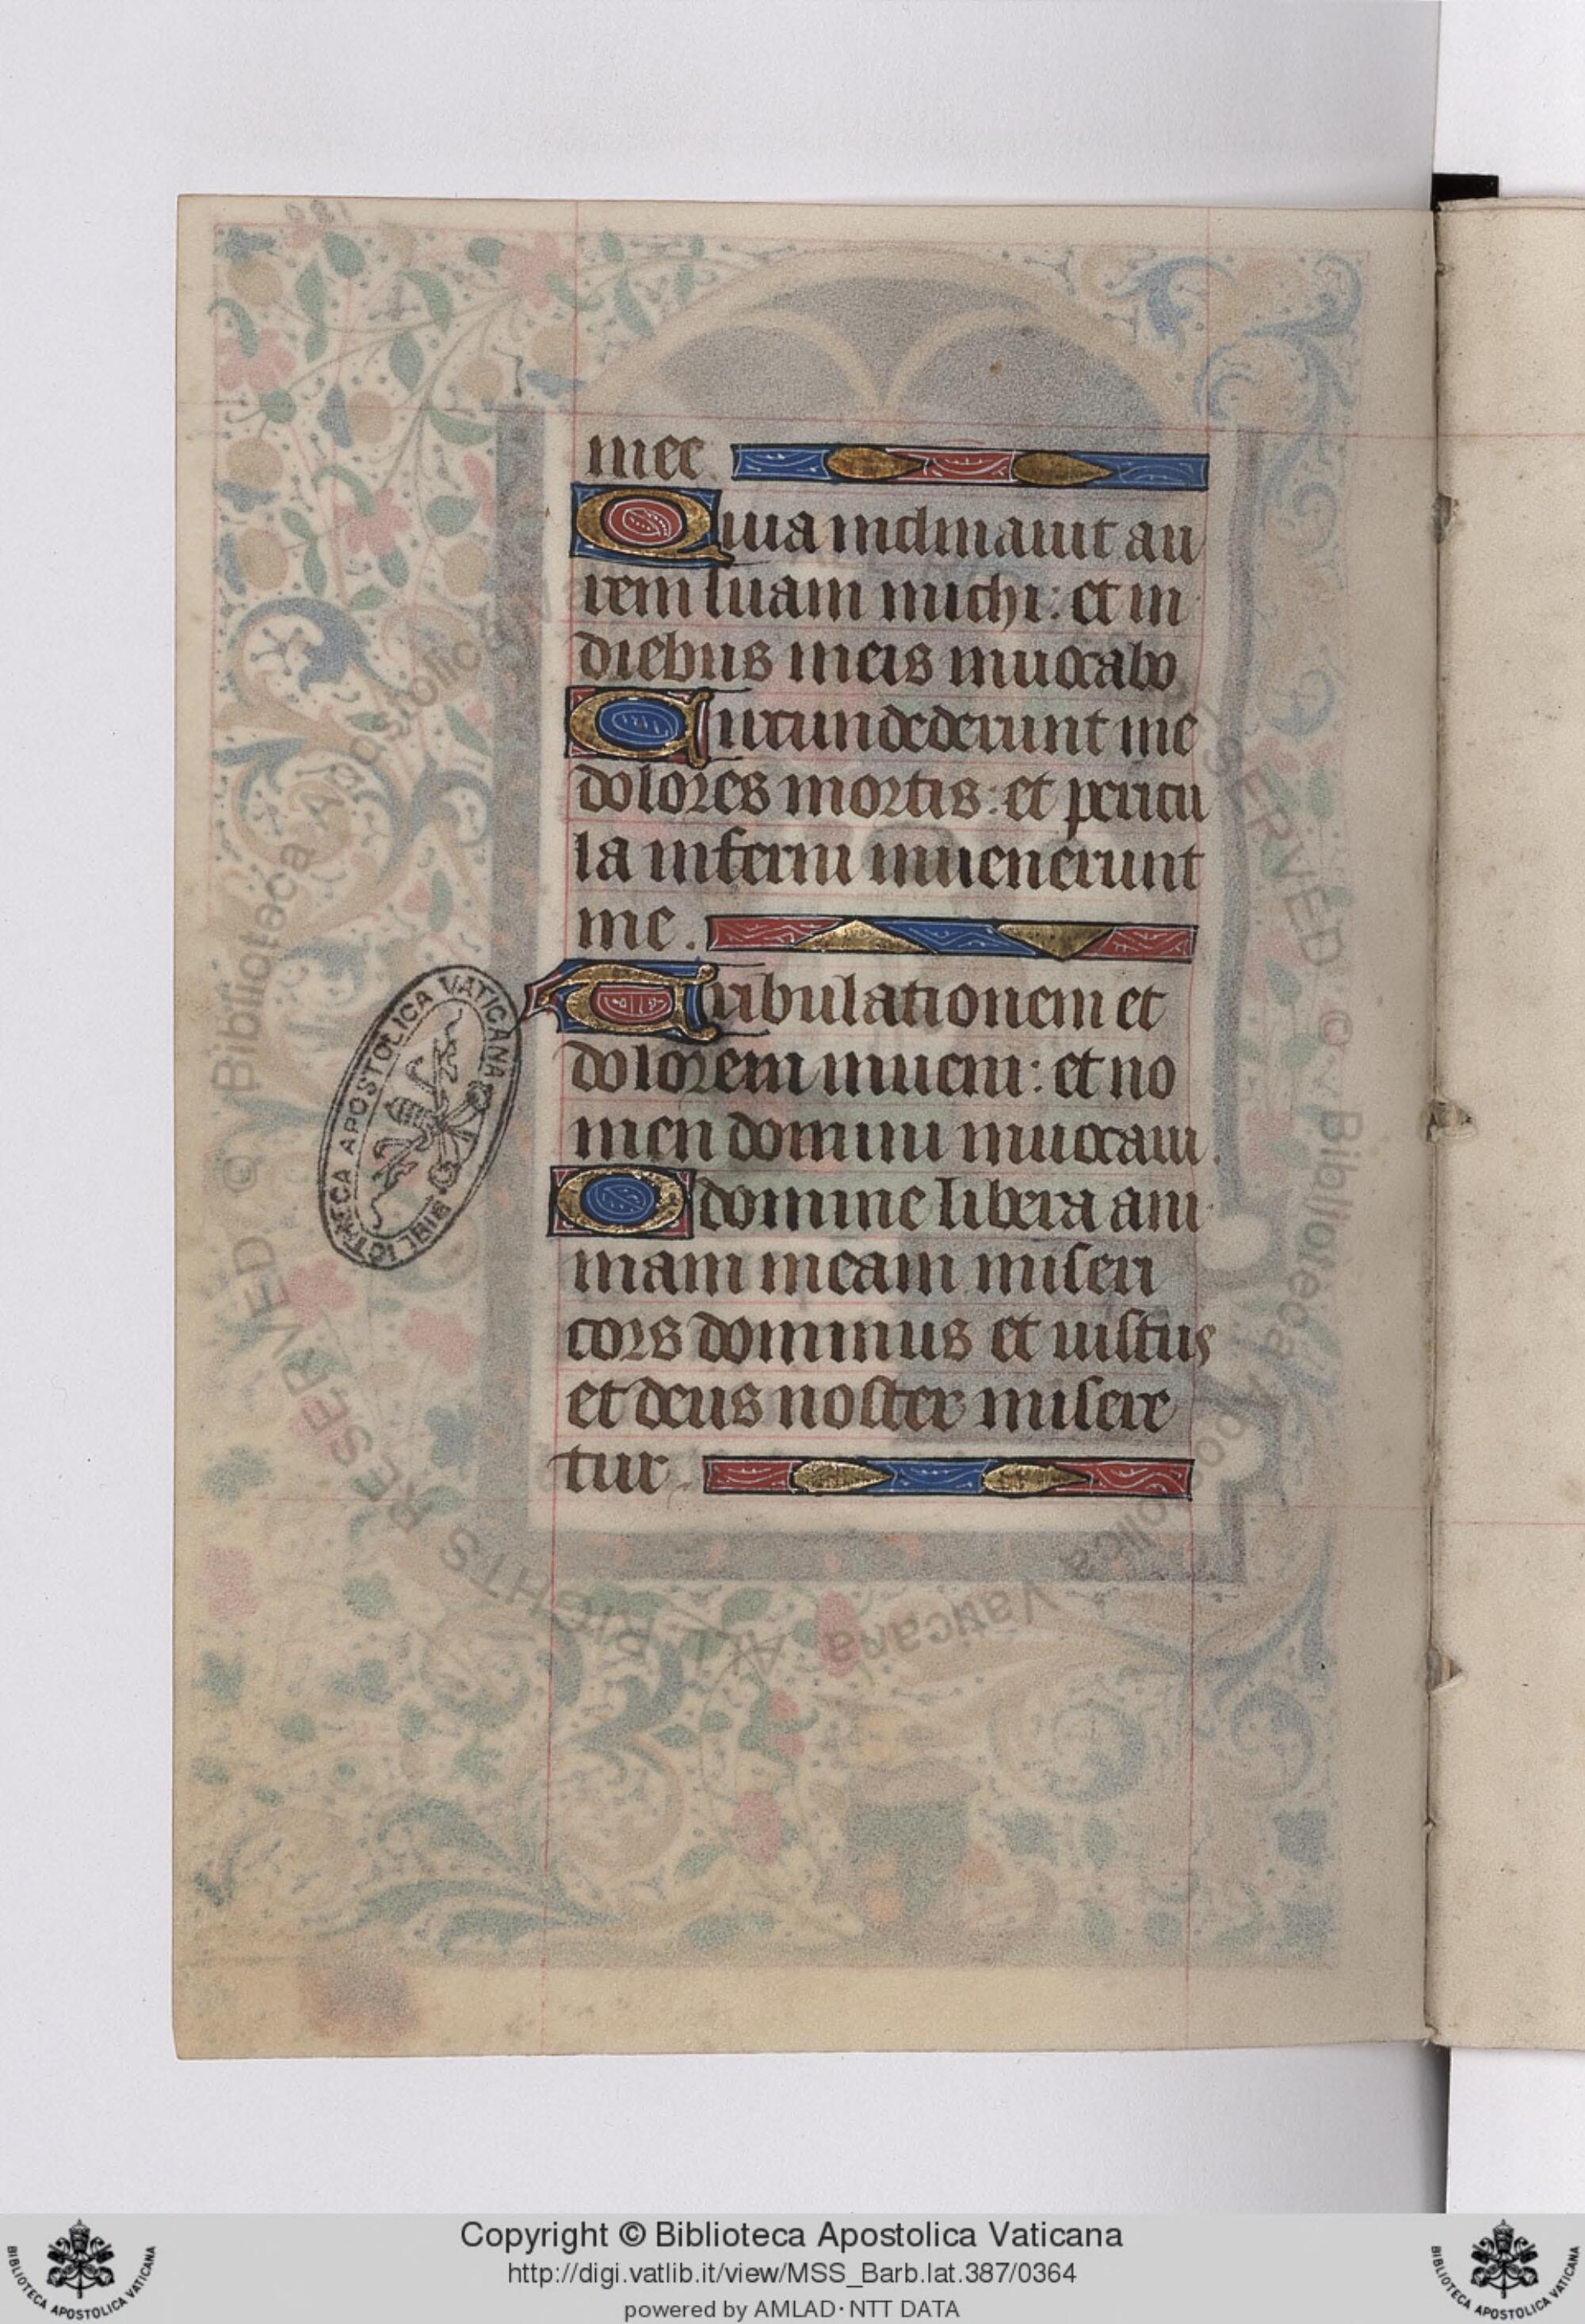 mee.
Quia inclinauit au
rem suam michi: et in
diebus meis inuocabo
Circundederunt me
dolores mortis: et pericu
la inferni inuenerunt
me.
Tribulationem et
dolorem inueni: et no
men domini inuocaui.
O domine libera ani
mam meam miseri
cors dominus et iustus
et deus noster misere
tur.
BIBLIOTHECA APOSTOLICA VATICANA
© Biblioteca Apostolica Vaticana ALL RIGHTS RESERVED © Biblioteca Apostolica Vaticana ALL RIGHTS RESERVED
Copyright © Biblioteca Apostolica Vaticana
http://digi.vatlib.it/view/MSS_Barb.lat.387/0364
powered by AMLAD·NTT DATA
BIBLIOTECA APOSTOLICA VATICANA
BIBLIOTECA APOSTOLICA VATICANA